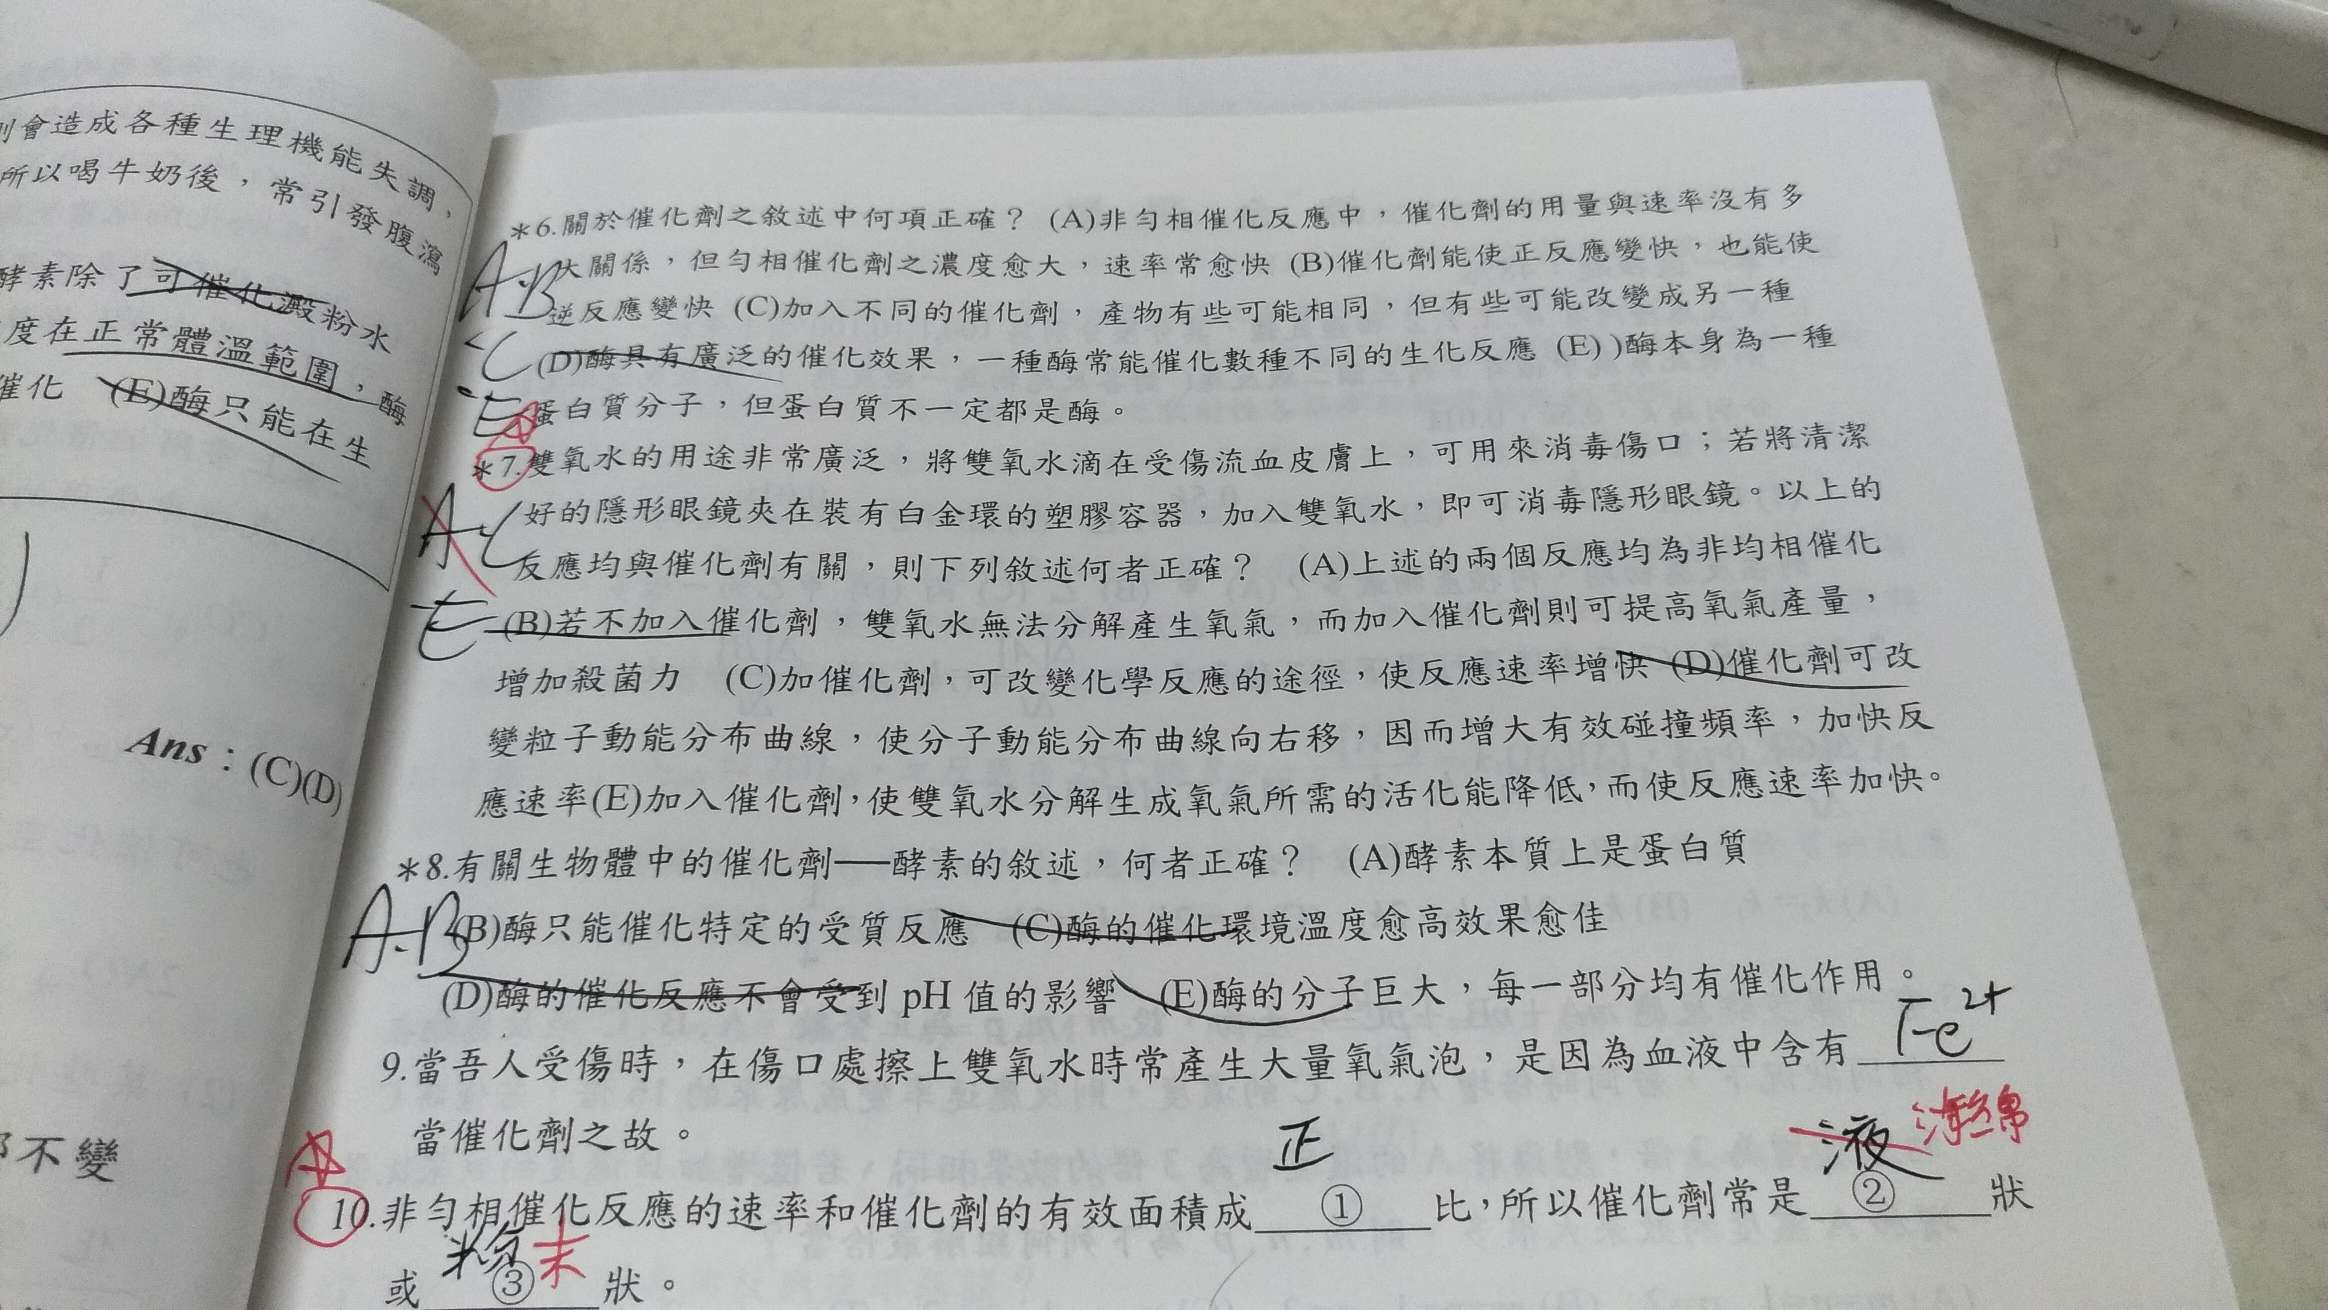 則會造成各種生理機能失調，
所以喝牛奶後，常引發腹瀉
酵素除了可催化澱粉水
度在正常體溫範圍，酶
催化 (E)酶只能在生
Ans：(C)(D)
不變
*6.關於催化劑之敘述中何項正確？ (A)非勻相催化反應中，催化劑的用量與速率沒有多
大關係，但勻相催化劑之濃度愈大，速率常愈快 (B)催化劑能使正反應變快，也能使
逆反應變快 (C)加入不同的催化劑，產物有些可能相同，但有些可能改變成另一種
(D)酶具有廣泛的催化效果，一種酶常能催化數種不同的生化反應 (E) )酶本身為一種
蛋白質分子，但蛋白質不一定都是酶。
A.B
C
E
*7.雙氧水的用途非常廣泛，將雙氧水滴在受傷流血皮膚上，可用來消毒傷口；若將清潔
好的隱形眼鏡夾在裝有白金環的塑膠容器，加入雙氧水，即可消毒隱形眼鏡。以上的
反應均與催化劑有關，則下列敘述何者正確？ (A)上述的兩個反應均為非均相催化
(B)若不加入催化劑，雙氧水無法分解產生氧氣，而加入催化劑則可提高氧氣產量，
增加殺菌力 (C)加催化劑，可改變化學反應的途徑，使反應速率增快 (D)催化劑可改
變粒子動能分布曲線，使分子動能分布曲線向右移，因而增大有效碰撞頻率，加快反
應速率(E)加入催化劑，使雙氧水分解生成氧氣所需的活化能降低，而使反應速率加快。
A.C
E
*8.有關生物體中的催化劑──酵素的敘述，何者正確？ (A)酵素本質上是蛋白質
(B)酶只能催化特定的受質反應 (C)酶的催化環境溫度愈高效果愈佳
(D)酶的催化反應不會受到 pH 值的影響 (E)酶的分子巨大，每一部分均有催化作用。
A.B
9.當吾人受傷時，在傷口處擦上雙氧水時常產生大量氧氣泡，是因為血液中含有 Fe2+
當催化劑之故。
正 液 海綿
10.非勻相催化反應的速率和催化劑的有效面積成 ① 比，所以催化劑常是 ② 狀
粉末
或 ③ 狀。